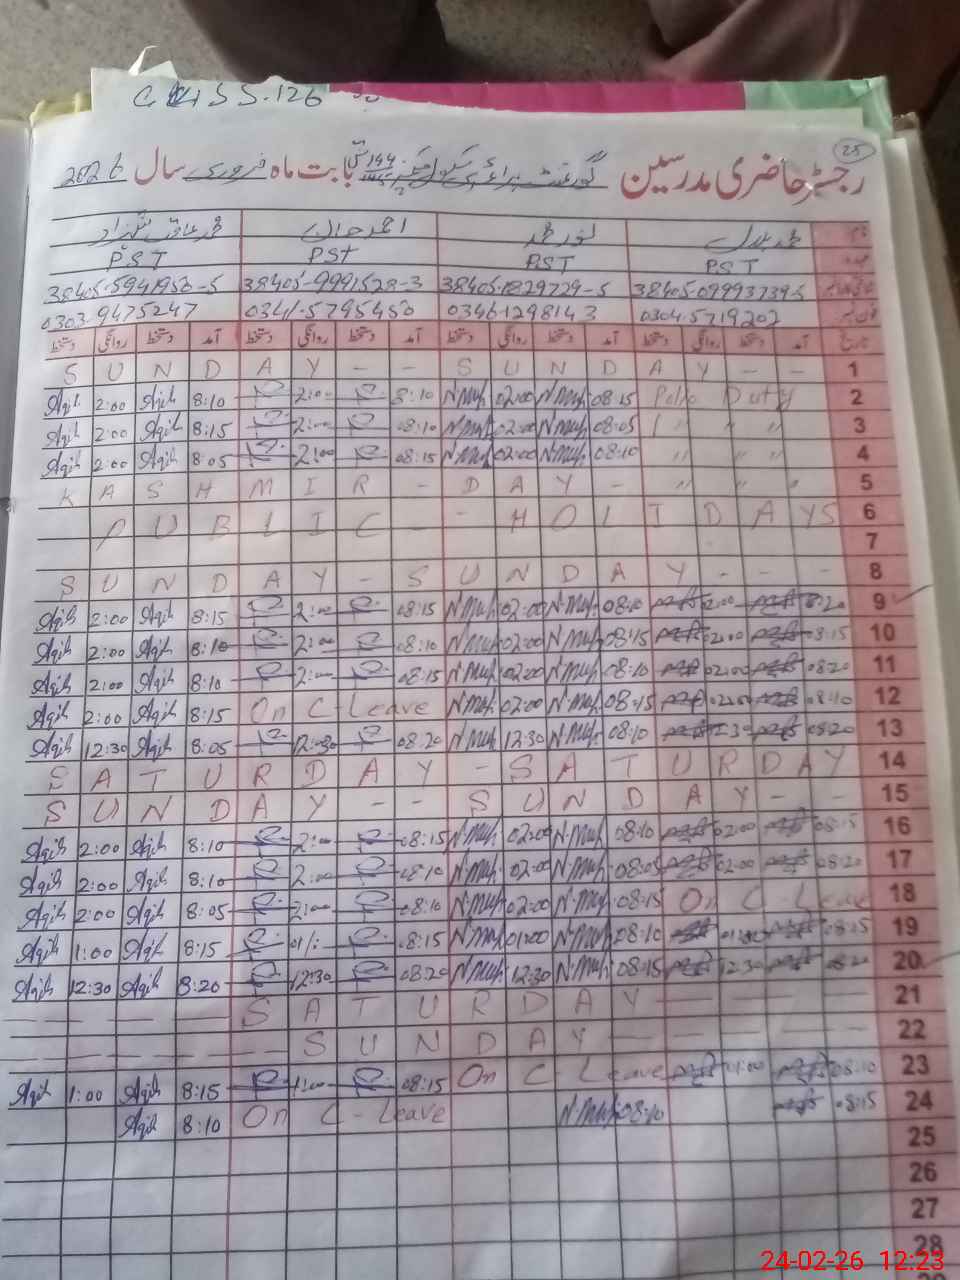 25
رجسٹر حاضری مدرسین گورنمنٹ پرائمری سکول بابت ماہ فروری سال 2026
نام
PST PST PST PST
38405-0999373-5 38405-1829729-5 38405-9991528-3 38405-5941950-5
0304-5719202 0346-1298143 0341-5795450 0303-9475247
تاریخ آمد دستخط روانگی دستخط آمد دستخط روانگی دستخط آمد دستخط روانگی دستخط آمد دستخط روانگی دستخط
S U N D A Y - - S U N D A Y - - 1
Aqib 2:00 Aqib 8:10 2:00 8:10 N.Muh 02:00 N.Muh 08:15 Polio Duty 2
Aqib 2:00 Aqib 8:15 2:00 08:10 N.Muh 02:00 N.Muh 08:05 " " " 3
Aqib 2:00 Aqib 8:05 2:00 08:15 N.Muh 02:00 N.Muh 08:10 " " " 4
K A S H M I R - D A Y - " " " 5
P U B L I C - - H O L I D A Y S 6
7
S U N D A Y - S U N D A Y - - - 8
Aqib 2:00 Aqib 8:15 2:00 08:15 N.Muh 02:00 N.Muh 08:10 02:00 8:20 9
Aqib 2:00 Aqib 8:10 2:00 08:10 N.Muh 02:00 N.Muh 08:15 02:00 8:15 10
Aqib 2:00 Aqib 8:10 2:00 08:15 N.Muh 02:00 N.Muh 08:10 02:00 08:20 11
Aqib 2:00 Aqib 8:15 On C-Leave N.Muh 02:00 N.Muh 08:15 02:00 08:10 12
Aqib 12:30 Aqib 8:05 12:30 08:20 N.Muh 12:30 N.Muh 08:10 12:30 08:20 13
S A T U R D A Y - S A T U R D A Y 14
S U N D A Y - - S U N D A Y - - 15
Aqib 2:00 Aqib 8:10 2:00 08:15 N.Muh 02:00 N.Muh 08:10 02:00 08:15 16
Aqib 2:00 Aqib 8:10 2:00 08:10 N.Muh 02:00 N.Muh 08:05 02:00 08:20 17
Aqib 2:00 Aqib 8:05 2:00 08:10 N.Muh 02:00 N.Muh 08:15 On C-Leave 18
Aqib 1:00 Aqib 8:15 01:00 08:15 N.Muh 01:00 N.Muh 08:10 01:00 08:15 19
Aqib 12:30 Aqib 8:20 12:30 08:20 N.Muh 12:30 N.Muh 08:15 12:30 08:20 20
S A T U R D A Y 21
S U N D A Y 22
Aqib 1:00 Aqib 8:15 1:00 08:15 On C-Leave 01:00 08:10 23
Aqib 8:10 On C-Leave N.Muh 08:10 08:15 24
25
26
27
28
24-02-26 12:23